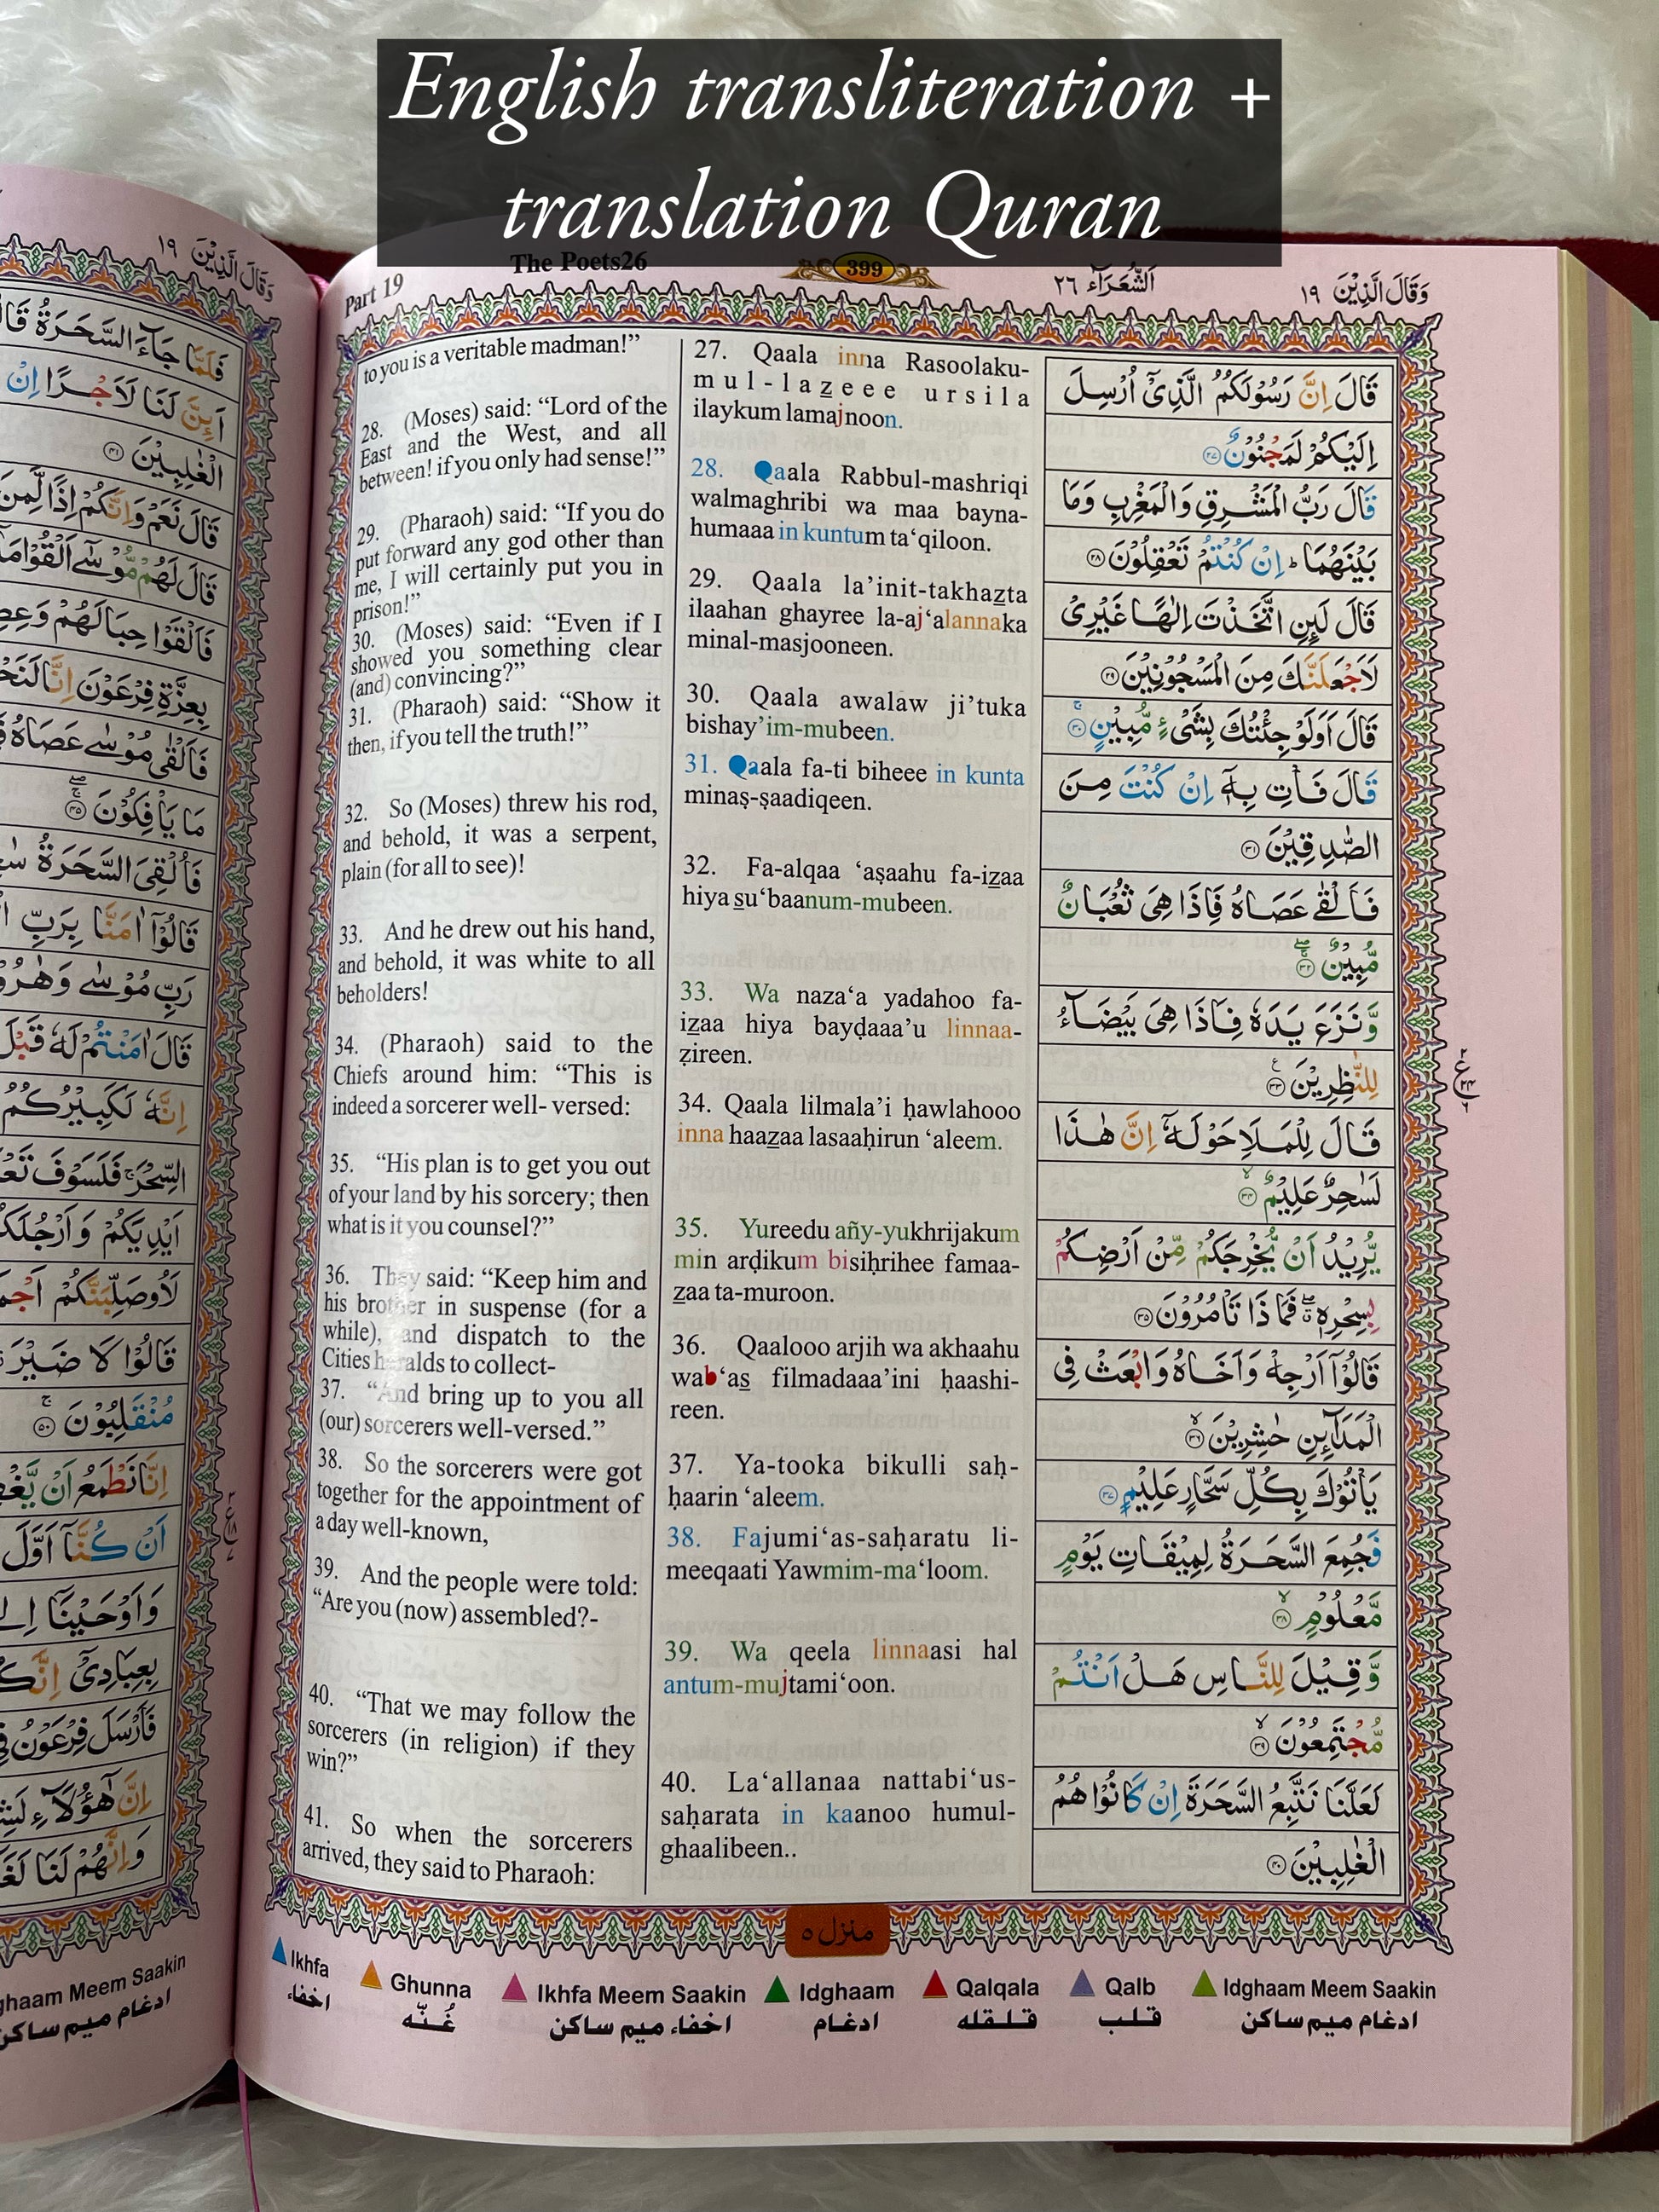 English transliteration +
translation Quran
Part 19
The Poets26
399
اَلشُّعَرَآء ٢٦
وَقَالَ الَّذِيْنَ ١٩
to you is a veritable madman!”
28. (Moses) said: “Lord of the
East and the West, and all
between! if you only had sense!”
29. (Pharaoh) said: “If you do
put forward any god other than
me, I will certainly put you in
prison!”
30. (Moses) said: “Even if I
showed you something clear
(and) convincing?”
31. (Pharaoh) said: “Show it
then, if you tell the truth!”
32. So (Moses) threw his rod,
and behold, it was a serpent,
plain (for all to see)!
33. And he drew out his hand,
and behold, it was white to all
beholders!
34. (Pharaoh) said to the
Chiefs around him: “This is
indeed a sorcerer well- versed:
35. “His plan is to get you out
of your land by his sorcery; then
what is it you counsel?”
36. They said: “Keep him and
his brother in suspense (for a
while), and dispatch to the
Cities heralds to collect-
37. “And bring up to you all
(our) sorcerers well-versed.”
38. So the sorcerers were got
together for the appointment of
a day well-known,
39. And the people were told:
“Are you (now) assembled?-
40. “That we may follow the
sorcerers (in religion) if they
win?”
41. So when the sorcerers
arrived, they said to Pharaoh:
27. Qaala inna Rasoolaku-
mul-lazeee ursila
ilaykum lamajnoon.
28. Qaala Rabbul-mashriqi
walmaghribi wa maa bayna-
humaaa in kuntum ta‘qiloon.
29. Qaala la’init-takhazta
ilaahan ghayree la-aj‘alannaka
minal-masjooneen.
30. Qaala awalaw ji’tuka
bishay’im-mubeen.
31. Qaala fa-ti biheee in kunta
minaṣ-ṣaadiqeen.
32. Fa-alqaa ‘aṣaahu fa-izaa
hiya su‘baanum-mubeen.
33. Wa naza‘a yadahoo fa-
izaa hiya bayḍaaa’u linnaa-
ẓireen.
34. Qaala lilmala’i ḥawlahooo
inna haazaa lasaaḥirun ‘aleem.
35. Yureedu añy-yukhrijakum
min arḍikum bisiḥrihee famaa-
zaa ta-muroon.
36. Qaalooo arjih wa akhaahu
wab‘as filmadaaa’ini ḥaashi-
reen.
37. Ya-tooka bikulli saḥ-
ḥaarin ‘aleem.
38. Fajumi‘as-saḥaratu li-
meeqaati Yawmim-ma‘loom.
39. Wa qeela linnaasi hal
antum-mujtami‘oon.
40. La‘allanaa nattabi‘us-
saḥarata in kaanoo humul-
ghaalibeen..
قَالَ اِنَّ رَسُوْلَكُمُ الَّذِيْٓ اُرْسِلَ
اِلَيْكُمْ لَمَجْنُوْنٌ ۝٢٧
قَالَ رَبُّ الْمَشْرِقِ وَالْمَغْرِبِ وَمَا
بَيْنَهُمَا ؕ اِنْ كُنْتُمْ تَعْقِلُوْنَ ۝٢٨
قَالَ لَىِٕنِ اتَّخَذْتَ اِلٰهًا غَيْرِيْ
لَاَجْعَلَنَّكَ مِنَ الْمَسْجُوْنِيْنَ ۝٢٩
قَالَ اَوَلَوْ جِئْتُكَ بِشَيْءٍ مُّبِيْنٍ ۚ۝٣٠
قَالَ فَاْتِ بِهٖٓ اِنْ كُنْتَ مِنَ
الصّٰدِقِيْنَ ۝٣١
فَاَلْقٰى عَصَاهُ فَاِذَا هِيَ ثُعْبَانٌ
مُّبِيْنٌ ۚۖ۝٣٢
وَّنَزَعَ يَدَهٗ فَاِذَا هِيَ بَيْضَآءُ
لِلنّٰظِرِيْنَ ۝٣٣
قَالَ لِلْمَلَاِ حَوْلَهٗٓ اِنَّ هٰذَا
لَسٰحِرٌ عَلِيْمٌ ۙ۝٣٤
يُّرِيْدُ اَنْ يُّخْرِجَكُمْ مِّنْ اَرْضِكُمْ
بِسِحْرِهٖ ۖۗ فَمَا ذَا تَاْمُرُوْنَ ۝٣٥
قَالُوْٓا اَرْجِهْ وَاَخَاهُ وَابْعَثْ فِي
الْمَدَآىِٕنِ حٰشِرِيْنَ ۙ۝٣٦
يَاْتُوْكَ بِكُلِّ سَحَّارٍ عَلِيْمٍ ۝٣٧
فَجُمِعَ السَّحَرَةُ لِمِيْقَاتِ يَوْمٍ
مَّعْلُوْمٍ ۙ۝٣٨
وَّقِيْلَ لِلنَّاسِ هَلْ اَنْتُمْ
مُّجْتَمِعُوْنَ ۙ۝٣٩
لَعَلَّنَا نَتَّبِعُ السَّحَرَةَ اِنْ كَانُوْا هُمُ
الْغٰلِبِيْنَ ۝٤٠
منزل ٥
Ikhfa
اخفاء
Ghunna
غُنّه
Ikhfa Meem Saakin
اخفاء میم ساکن
Idghaam
ادغام
Qalqala
قلقله
Qalb
قلب
Idghaam Meem Saakin
ادغام میم ساکن
وَقَالَ الَّذِيْنَ ١٩
فَلَمَّا جَآءَ السَّحَرَةُ
اَىِٕنَّ لَنَا لَاَجْرًا اِنْ
الْغٰلِبِيْنَ ۝٤١
قَالَ نَعَمْ وَاِنَّكُمْ اِذًا لَّمِنَ
قَالَ لَهُمْ مُّوْسٰٓى اَلْقُوْا مَا
فَاَلْقَوْا حِبَالَهُمْ
بِعِزَّةِ فِرْعَوْنَ اِنَّا
فَاَلْقٰى مُوْسٰى عَصَاهُ
مَا يَاْفِكُوْنَ ۚۖ۝٤٥
فَاُلْقِيَ السَّحَرَةُ
قَالُوْٓا اٰمَنَّا بِرَبِّ
رَبِّ مُوْسٰى وَهٰرُوْ
قَالَ اٰمَنْتُمْ لَهٗ قَبْلَ
اِنَّهٗ لَكَبِيْرُكُمُ
السِّحْرَ ۚ فَلَسَوْفَ
اَيْدِيَكُمْ وَاَرْجُلَكُ
لَاُوصَلِّبَنَّكُمْ
قَالُوْا لَا ضَيْرَ
مُنْقَلِبُوْنَ ۚ۝٥٠
اِنَّا نَطْمَعُ اَنْ
اَنْ كُنَّآ اَوَّلَ
وَاَوْحَيْنَآ
بِعِبَادِيْٓ
فَاَرْسَلَ فِرْعَوْنُ
اِنَّ هٰٓؤُلَآءِ
وَاِنَّهُمْ لَنَا
ghaam Meem Saakin
ادغام میم ساکن